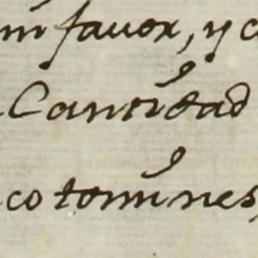 m favor, y c
Cantidad
co tomines